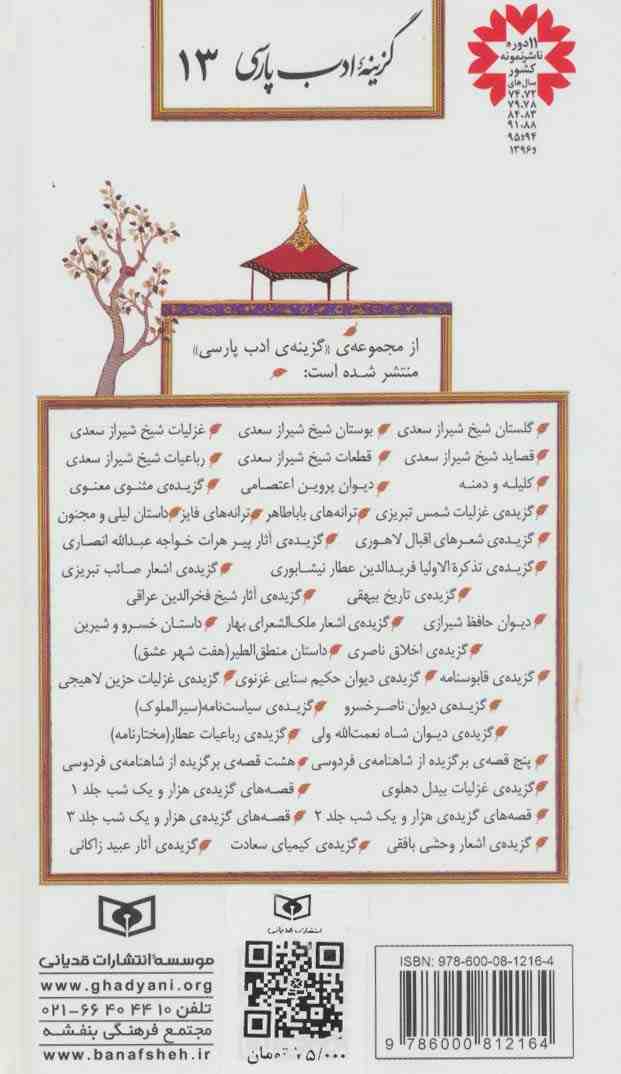 گزینهٔ ادب پارسی ۱۳
۱۱ دوره
ناشر نمونه
کشور
سال‌های
۷۴،۷۲
۷۹،۷۸
۸۴،۸۳
۹۱،۸۸
۹۴و۹۵
و۱۳۹۶
از مجموعه‌ی «گزینه‌ی ادب پارسی»
منتشر شده است:
گلستان شیخ شیراز سعدی بوستان شیخ شیراز سعدی غزلیات شیخ شیراز سعدی
قصاید شیخ شیراز سعدی قطعات شیخ شیراز سعدی رباعیات شیخ شیراز سعدی
کلیلـه و دمنـه دیـوان پرویـن اعتصـامی گزیده‌ی مثنـوی معنـوی
گزیده‌ی غزلیات شمس تبریزی ترانه‌های باباطاهر ترانه‌های فایز داستان لیلی و مجنون
گزیـده‌ی شعـرهای اقبال لاهـوری گزیـده‌ی آثار پیـر هرات خواجه عبـدالله انصـاری
گزیـده‌ی تذکرة الاولیا فریـدالدین عطار نیشـابوری گزیده‌ی اشعار صائب تبریزی
گزیده‌ی تاریخ بیهقی گزیده‌ی آثار شیخ فخرالدین عراقی
دیـوان حافظ شیرازی گزیده‌ی اشعار ملک‌الشعرای بهار داستـان خسـرو و شیرین
گزیده‌ی اخلاق ناصری داستان منطق‌الطیر(هفت شهر عشق)
گزیده‌ی قابوسنامه گزیده‌ی دیوان حکیم سنایی غزنوی گزیده‌ی غزلیات حزین لاهیجی
گزیـده‌ی دیوان ناصـرخسرو گزیـده‌ی سیاست‌نامه(سیرالملوک)
گزیده‌ی دیـوان شـاه نعمت‌الله ولی گزیده‌ی رباعیات عطار(مختارنامه)
پنج قصه‌ی برگزیده از شاهنامه‌ی فردوسی هشت قصه‌ی برگزیده از شاهنامه‌ی فردوسی
گزیده‌ی غزلیات بیدل دهلوی قصـه‌های گزیده‌ی هزار و یک شب جلد ۱
قصه‌های گزیده‌ی هزار و یک شب جلد ۲ قصـه‌های گزیده‌ی هزار و یک شب جلد ۳
گزیده‌ی اشعار وحشی بافقی گزیده‌ی کیمیای سعادت گزیده‌ی آثار عبید زاکانی
موسسه انتشارات قدیانی
www.ghadyani.org
تلفن ۱۰ ۴۴ ۴۰ ۶۶-۰۲۱
مجتمع فرهنگی بنفشه
www.banafsheh.ir
انتشارات قدیانی
تومان
ISBN: 978-600-08-1216-4
9 786000 812164